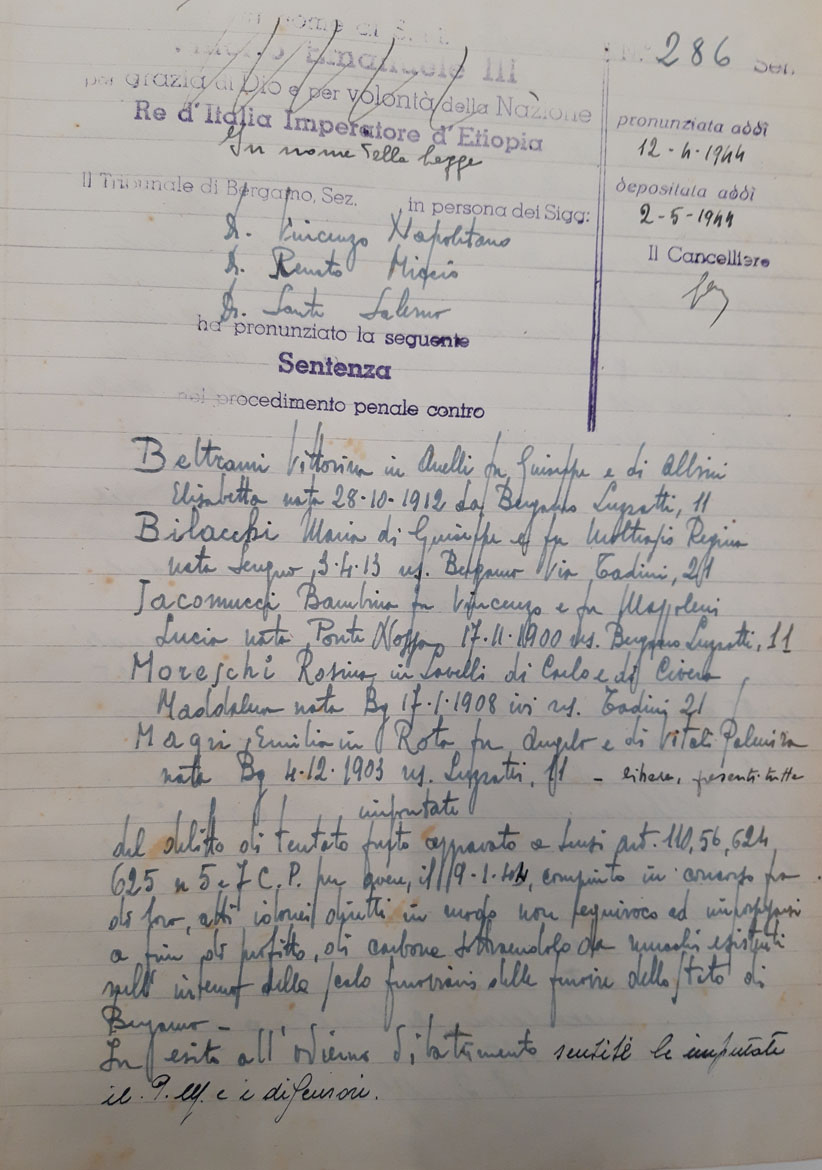 In nome di S. M.
Vittorio Emanuele III
per grazia di Dio e per volontà della Nazione
Re d'Italia Imperatore d'Etiopia
In nome della legge
Il Tribunale di Bergamo, Sez. in persona dei Sigg:
Dr. Vincenzo Napolitano
Dr. Renato
Dr. Santi Salerno
ha pronunziato la seguente
Sentenza
nel procedimento penale contro
N.° 286 Sen.
pronunziata addì
12-4-1944
depositata addì
2-5-1944
Il Cancelliere
Beltrami Vittorina in fu Giuseppe e di Albini
Elisabetta nata 28-10-1912 da Bergamo Luzzatti, 11
Bilacchi Maria di Giuseppe e fu Regina
nata 3.4.13 res. Bergamo Via Tadini, 21
Jacomucci Bambina fu Vincenzo e fu
Lucia nata Ponte Nossa 17.11.1900 res. Bergamo Luzzatti, 11
Moreschi Rosina in di Carlo e di
Maddalena nata Bg 17.1.1908 ivi res. Tadini 21
Magri Emilia in Rota fu Angelo e di Vitali Palmira
nata Bg 4-12-1903 res. Luzzatti, 11 - libere, presenti tutte
imputate
del delitto di tentato furto aggravato a sensi art. 110, 56, 624,
625 n 5 e 7 C.P. per avere, il 19-1-44, compiuto in concorso fra
di loro, atti idonei diretti in modo non equivoco ad impossessarsi
a fine di profitto, di carbone sottraendolo da mucchi esistenti
nell'interno dello scalo ferroviario delle ferrovie dello Stato di
Bergamo -
In esito all'odierno dibattimento sentite le imputate
il P.M. e i difensori.